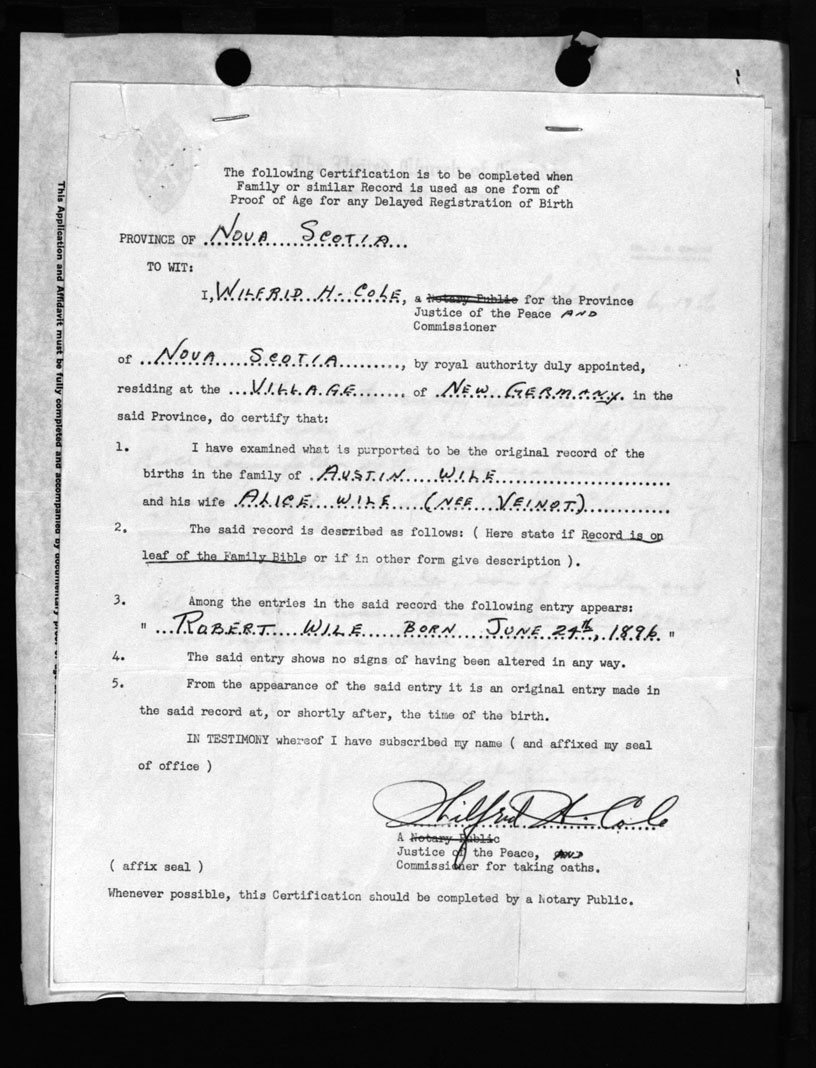 The following Certification is to be completed when
Family or similar Record is used as one form of
Proof of Age for any Delayed Registration of Birth
PROVINCE OF NOVA SCOTIA
TO WIT:
I, WILFRID H. COLE, a Notary Public for the Province
Justice of the Peace AND
Commissioner
of NOVA SCOTIA, by royal authority duly appointed,
residing at the VILLAGE of NEW GERMANY in the
said Province, do certify that:
1. I have examined what is purported to be the original record of the
births in the family of AUSTIN WILE
and his wife ALICE WILE (NEE VEINOT)
2. The said record is described as follows: ( Here state if Record is on
leaf of the Family Bible or if in other form give description ).
3. Among the entries in the said record the following entry appears:
" ROBERT WILE BORN JUNE 24th, 1896. "
4. The said entry shows no signs of having been altered in any way.
5. From the appearance of the said entry it is an original entry made in
the said record at, or shortly after, the time of the birth.
IN TESTIMONY whereof I have subscribed my name ( and affixed my seal
of office )
Wilfrid H. Cole
A Notary Public
Justice of the Peace, AND
( affix seal ) Commissioner for taking oaths.
Whenever possible, this Certification should be completed by a Notary Public.
This Application and Affidavit must be fully completed and accompanied by documentary